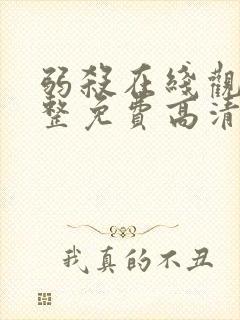 弱殺在綫觀
整免費高清
我真的不丑